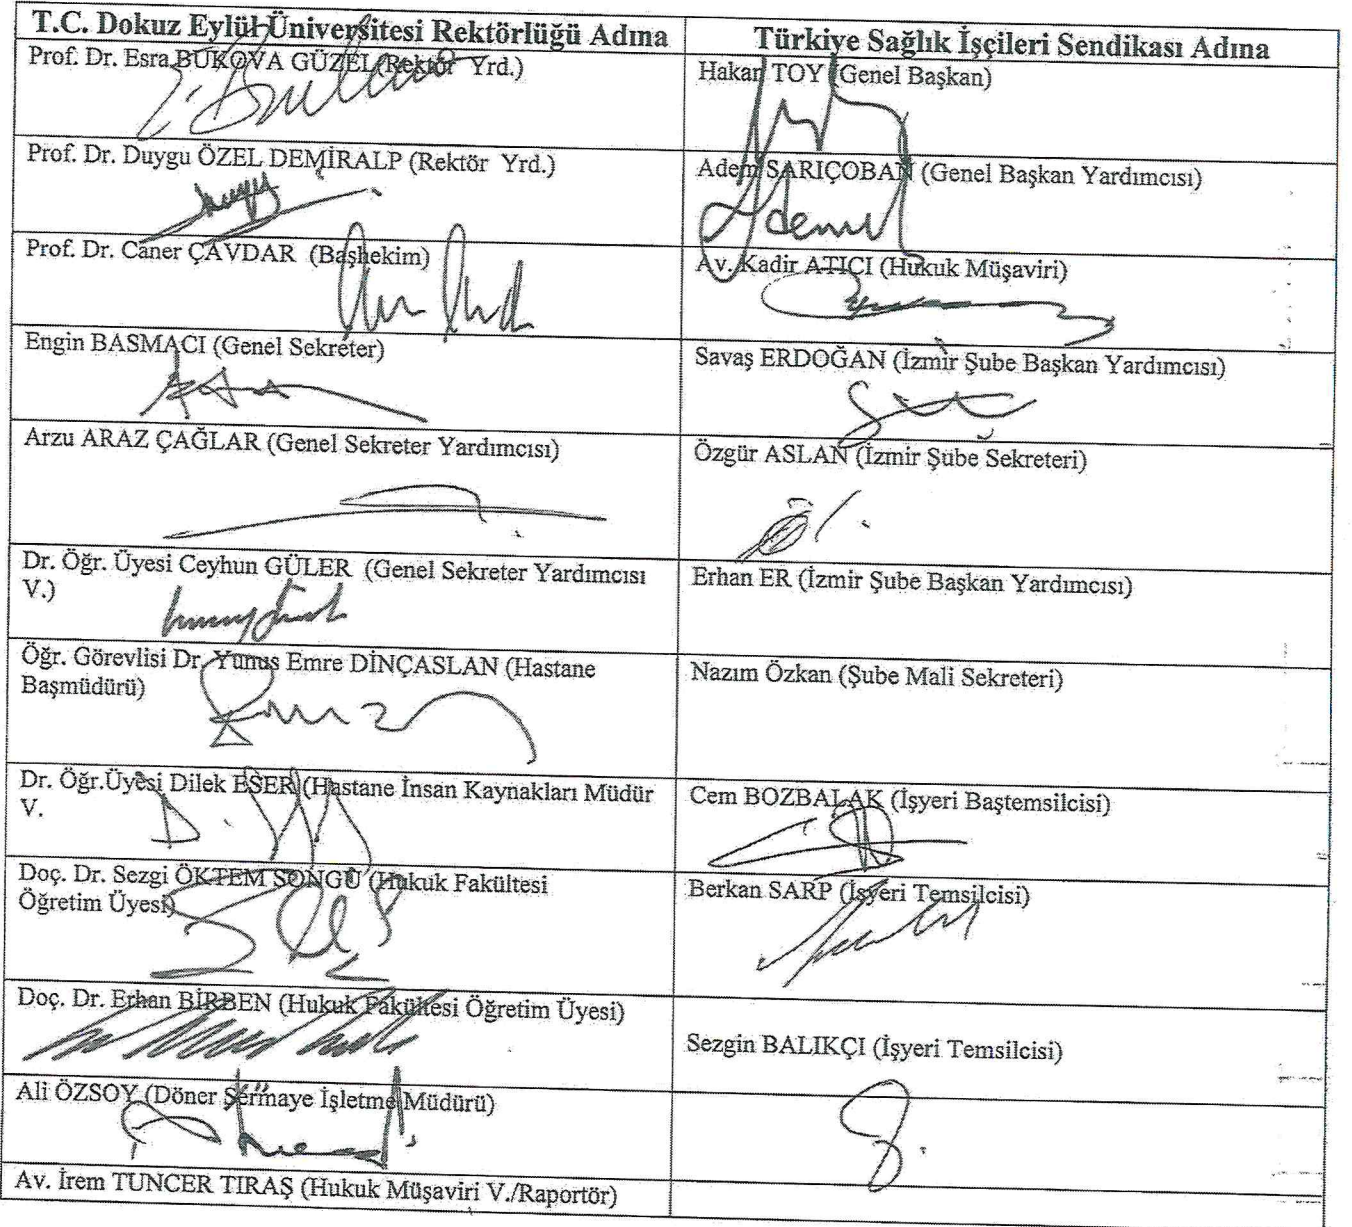 T.C. Dokuz Eylül Üniversitesi Rektörlüğü Adına
Türkiye Sağlık İşçileri Sendikası Adına
Prof. Dr. Esra BUKOVA GÜZEL (Rektör Yrd.)
Hakan TOY (Genel Başkan)
Prof. Dr. Duygu ÖZEL DEMİRALP (Rektör Yrd.)
Adem SARIÇOBAN (Genel Başkan Yardımcısı)
Adem
Prof. Dr. Caner ÇAVDAR (Başhekim)
Av. Kadir ATICI (Hukuk Müşaviri)
Engin BASMACI (Genel Sekreter)
Savaş ERDOĞAN (İzmir Şube Başkan Yardımcısı)
Arzu ARAZ ÇAĞLAR (Genel Sekreter Yardımcısı)
Özgür ASLAN (İzmir Şube Sekreteri)
Dr. Öğr. Üyesi Ceyhun GÜLER (Genel Sekreter Yardımcısı
V.)
Erhan ER (İzmir Şube Başkan Yardımcısı)
Öğr. Görevlisi Dr. Yunus Emre DİNÇASLAN (Hastane
Başmüdürü)
Nazım Özkan (Şube Mali Sekreteri)
Dr. Öğr.Üyesi Dilek ESER (Hastane İnsan Kaynakları Müdür
V.
Cem BOZBALAK (İşyeri Baştemsilcisi)
Doç. Dr. Sezgi ÖKTEM SONGU (Hukuk Fakültesi
Öğretim Üyesi)
Berkan SARP (İşyeri Temsilcisi)
Doç. Dr. Erhan BİRBEN (Hukuk Fakültesi Öğretim Üyesi)
Sezgin BALIKÇI (İşyeri Temsilcisi)
Ali ÖZSOY (Döner Sermaye İşletme Müdürü)
Av. İrem TUNCER TIRAŞ (Hukuk Müşaviri V./Raportör)